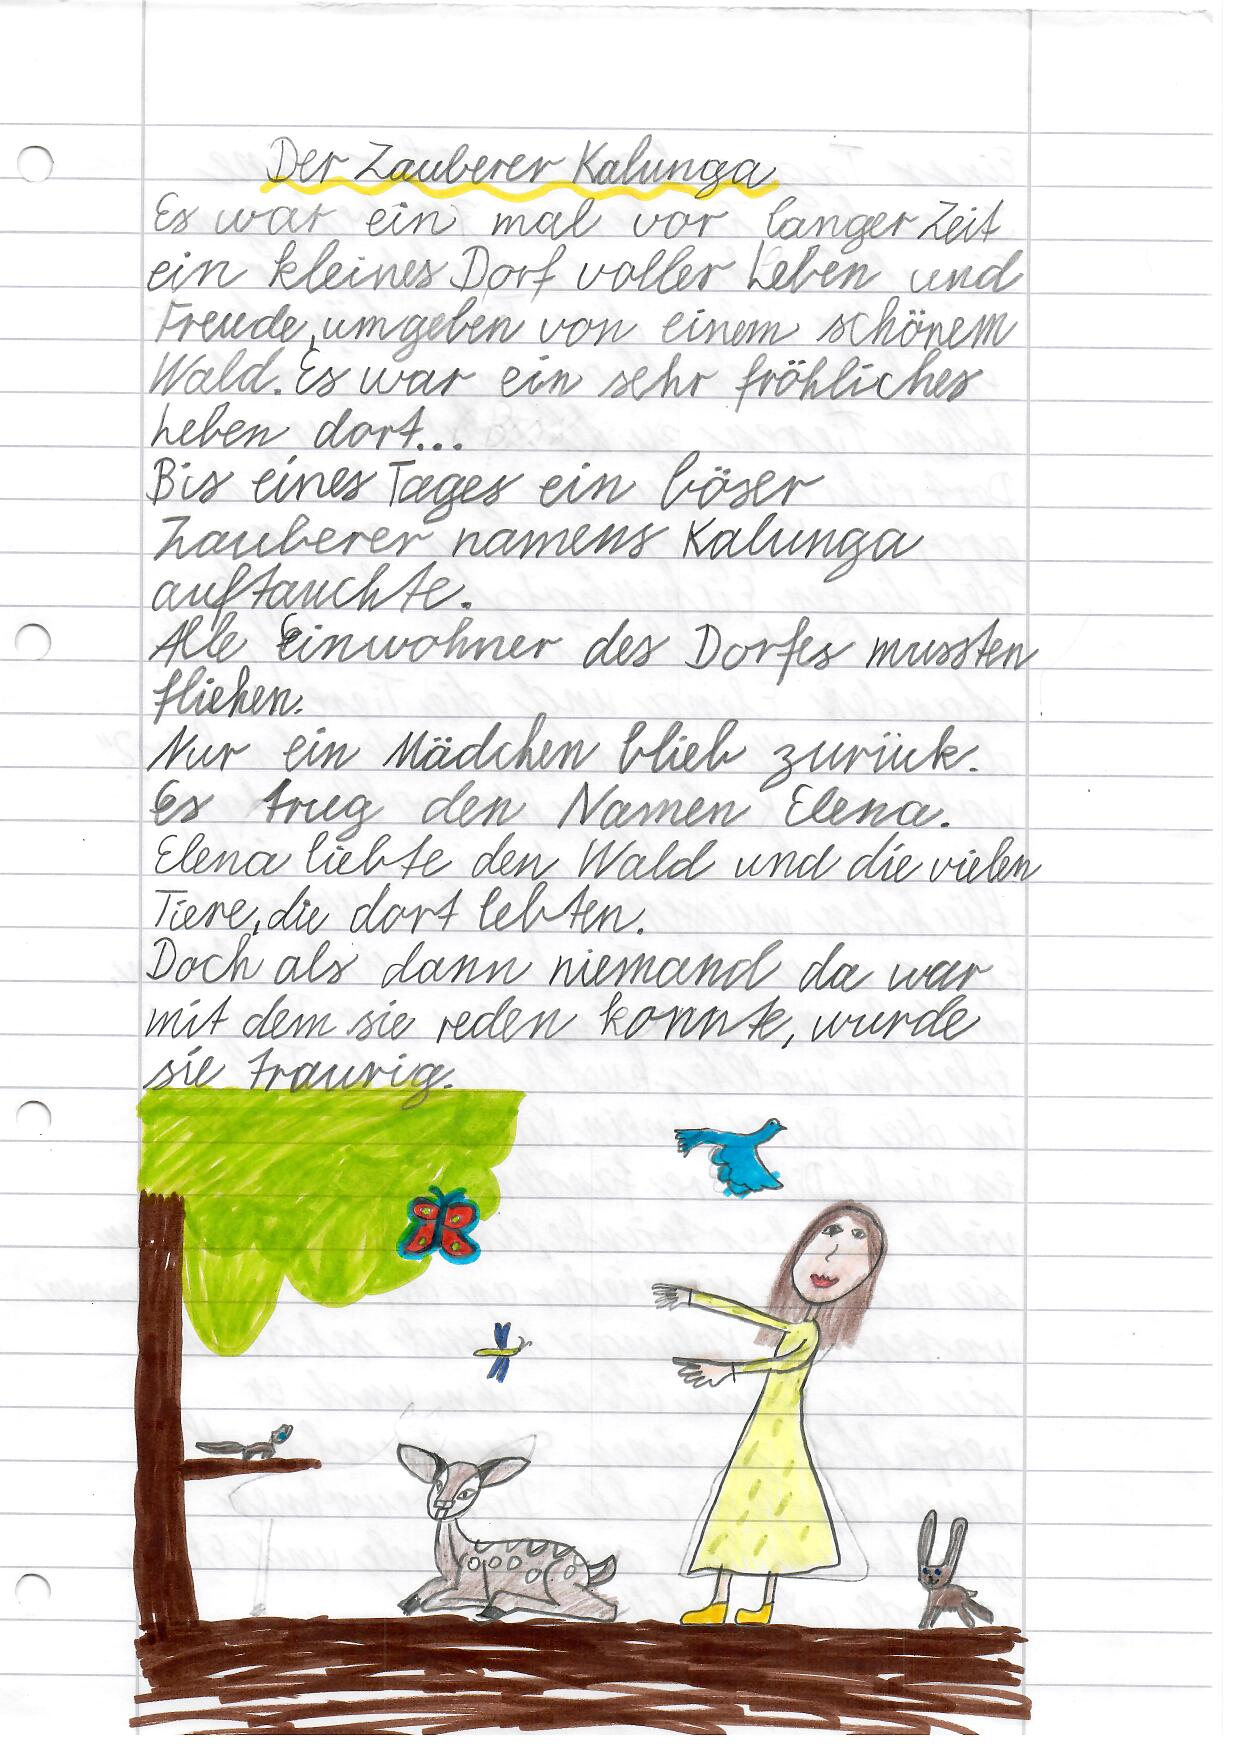 Der Zauberer Kalunga
Es war ein mal vor langer Zeit
ein kleines Dorf voller Leben und
Freude, umgeben von einem schönem
Wald. Es war ein sehr fröhliches
Leben dort...
Bis eines Tages ein böser
Zauberer namens Kalunga
auftauchte.
Alle Einwohner des Dorfes mussten
fliehen.
Nur ein Mädchen blieb zurück.
Es trug den Namen Elena.
Elena liebte den Wald und die vielen
Tiere, die dort lebten.
Doch als dann niemand da war
mit dem sie reden konnte, wurde
sie traurig.